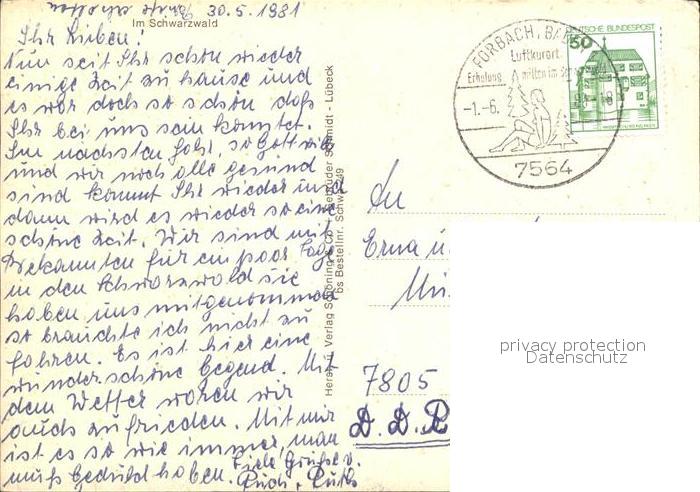 30.5.1981
Im Schwarzwald
Ihr Lieben!
Nun seit Ihr schon wieder
einige Zeit zu hause und
es war doch so schön daß
Ihr bei uns sein konntet.
Im nächsten Jahr, so Gott will
und wir noch alle gesund
sind kommt Ihr wieder und
dann wird es wieder so eine
schöne Zeit. Wir sind mit
Bekannten für ein paar Tage
in den Schwarzwald sie
haben uns mitgenommen
so brauchte ich nicht zu
fahren. Es ist hier eine
wunderschöne Gegend. Mit
dem Wetter waren wir
auch zufrieden. Mit mir
ist es so wie immer, man
muß geduld haben. Viele Grüße v.
Rudi + Ruth
Herst. u. Verlag Schöning & Co + Gebrüder Schmidt - Lübeck
bs Bestellnr. Schw
FORBACH, BADEN
Luftkurort
Erholung mitten im
-1.-6.
7564
DEUTSCHE BUNDESPOST
50
An
Erna u
7805
D.D.R
privacy protection
Datenschutz